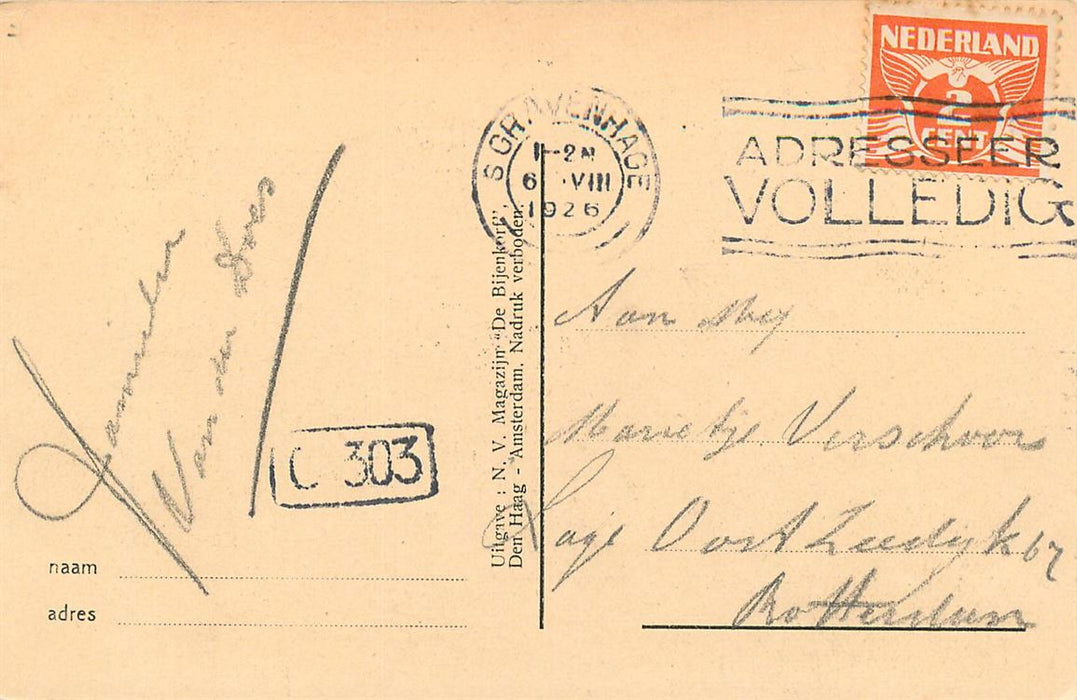 NEDERLAND
2
CENT
'S GRAVENHAGE
1-2N
6 .VIII
1926
ADRESSEER
VOLLEDIG
Familie
Van der
C 303
Uitgave : N. V. Magazijn "De Bijenkorf",
Den Haag - Amsterdam. Nadruk verboden.
Aan Mej
Marietje Verschoor
Lage Oostzeedijk 67
Rotterdam
naam
adres